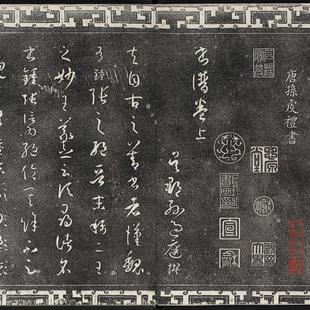 唐孫虔禮書
宣和
書譜卷上
吳郡孫過庭撰
夫自古之善書者漢魏
有鍾張之絕晉末稱二王
之妙王羲之云頃尋諸名
書鍾張信為絕倫其餘不足
觀